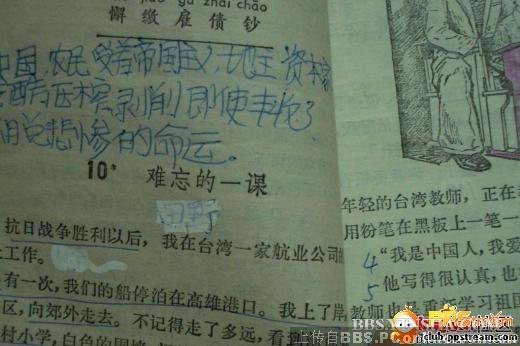 jiǎo gù zhài chāo
懈 缴 雇 债 钞
中国,农民受着帝国主义,地主,资本家
压榨剥削即使丰收了
悲惨的命运。
10* 难忘的一课
田野
抗日战争胜利以后,我在台湾一家航业公司的
工作。
有一次,我们的船停泊在高雄港口。我上了岸
区,向郊外走去。不记得走了多远,看
村小学,白色的围墙
年轻的台湾教师,正在
用粉笔在黑板上一笔一
4 “我是中国人,我爱
5 他写得很认真,也
教师也
重
学习祖国
上传自BBS.PC
club.ppstream.com